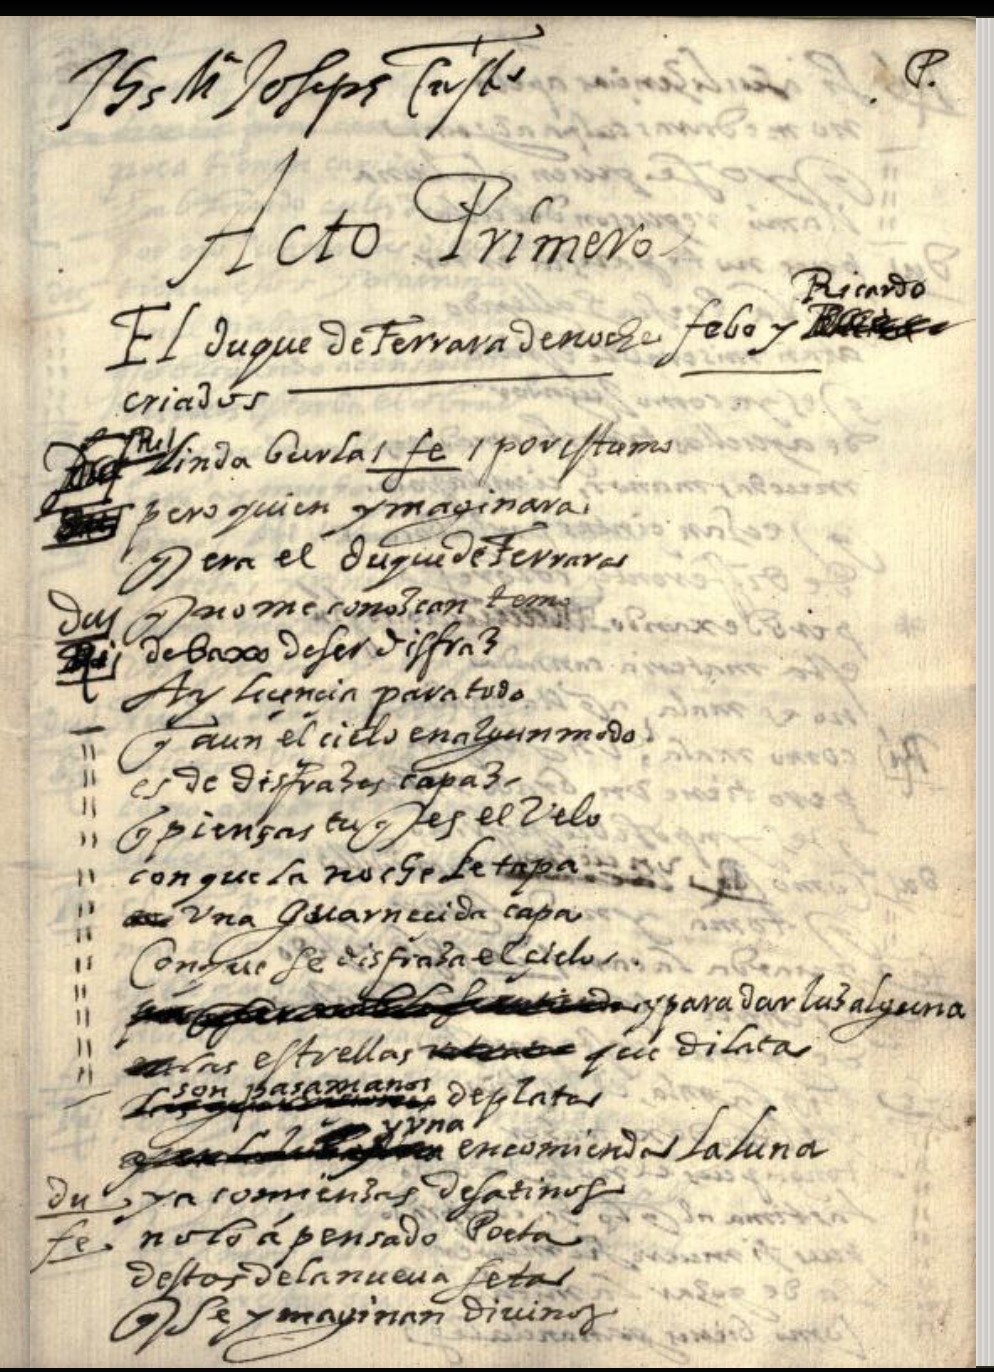 Jhs Mª Joseph Custº P.
Acto Primero
Ricardo
El duque de Ferrara de noche febo y
criados
Ri linda burla / fe / por estremo
pero quien ymaginara
q era el duque de Ferrara
Du q no me conozcan temo
Ri debaxo de ser disfraz
Ay licencia para todo
q aun el cielo en algun modo
es de disfrazes capaz
q piensas tu q es el Velo
con que la noche le tapa
Vna guarnecida capa
Con que se disfraza el cielo
y para dar luz alguna
las estrellas que dilata
son pasamanos de plata
y vna encomienda la luna
du ya comienzas desatinos
fe no lo á pensado Poeta
destos de la nueva seta
q se ymaginan divinos